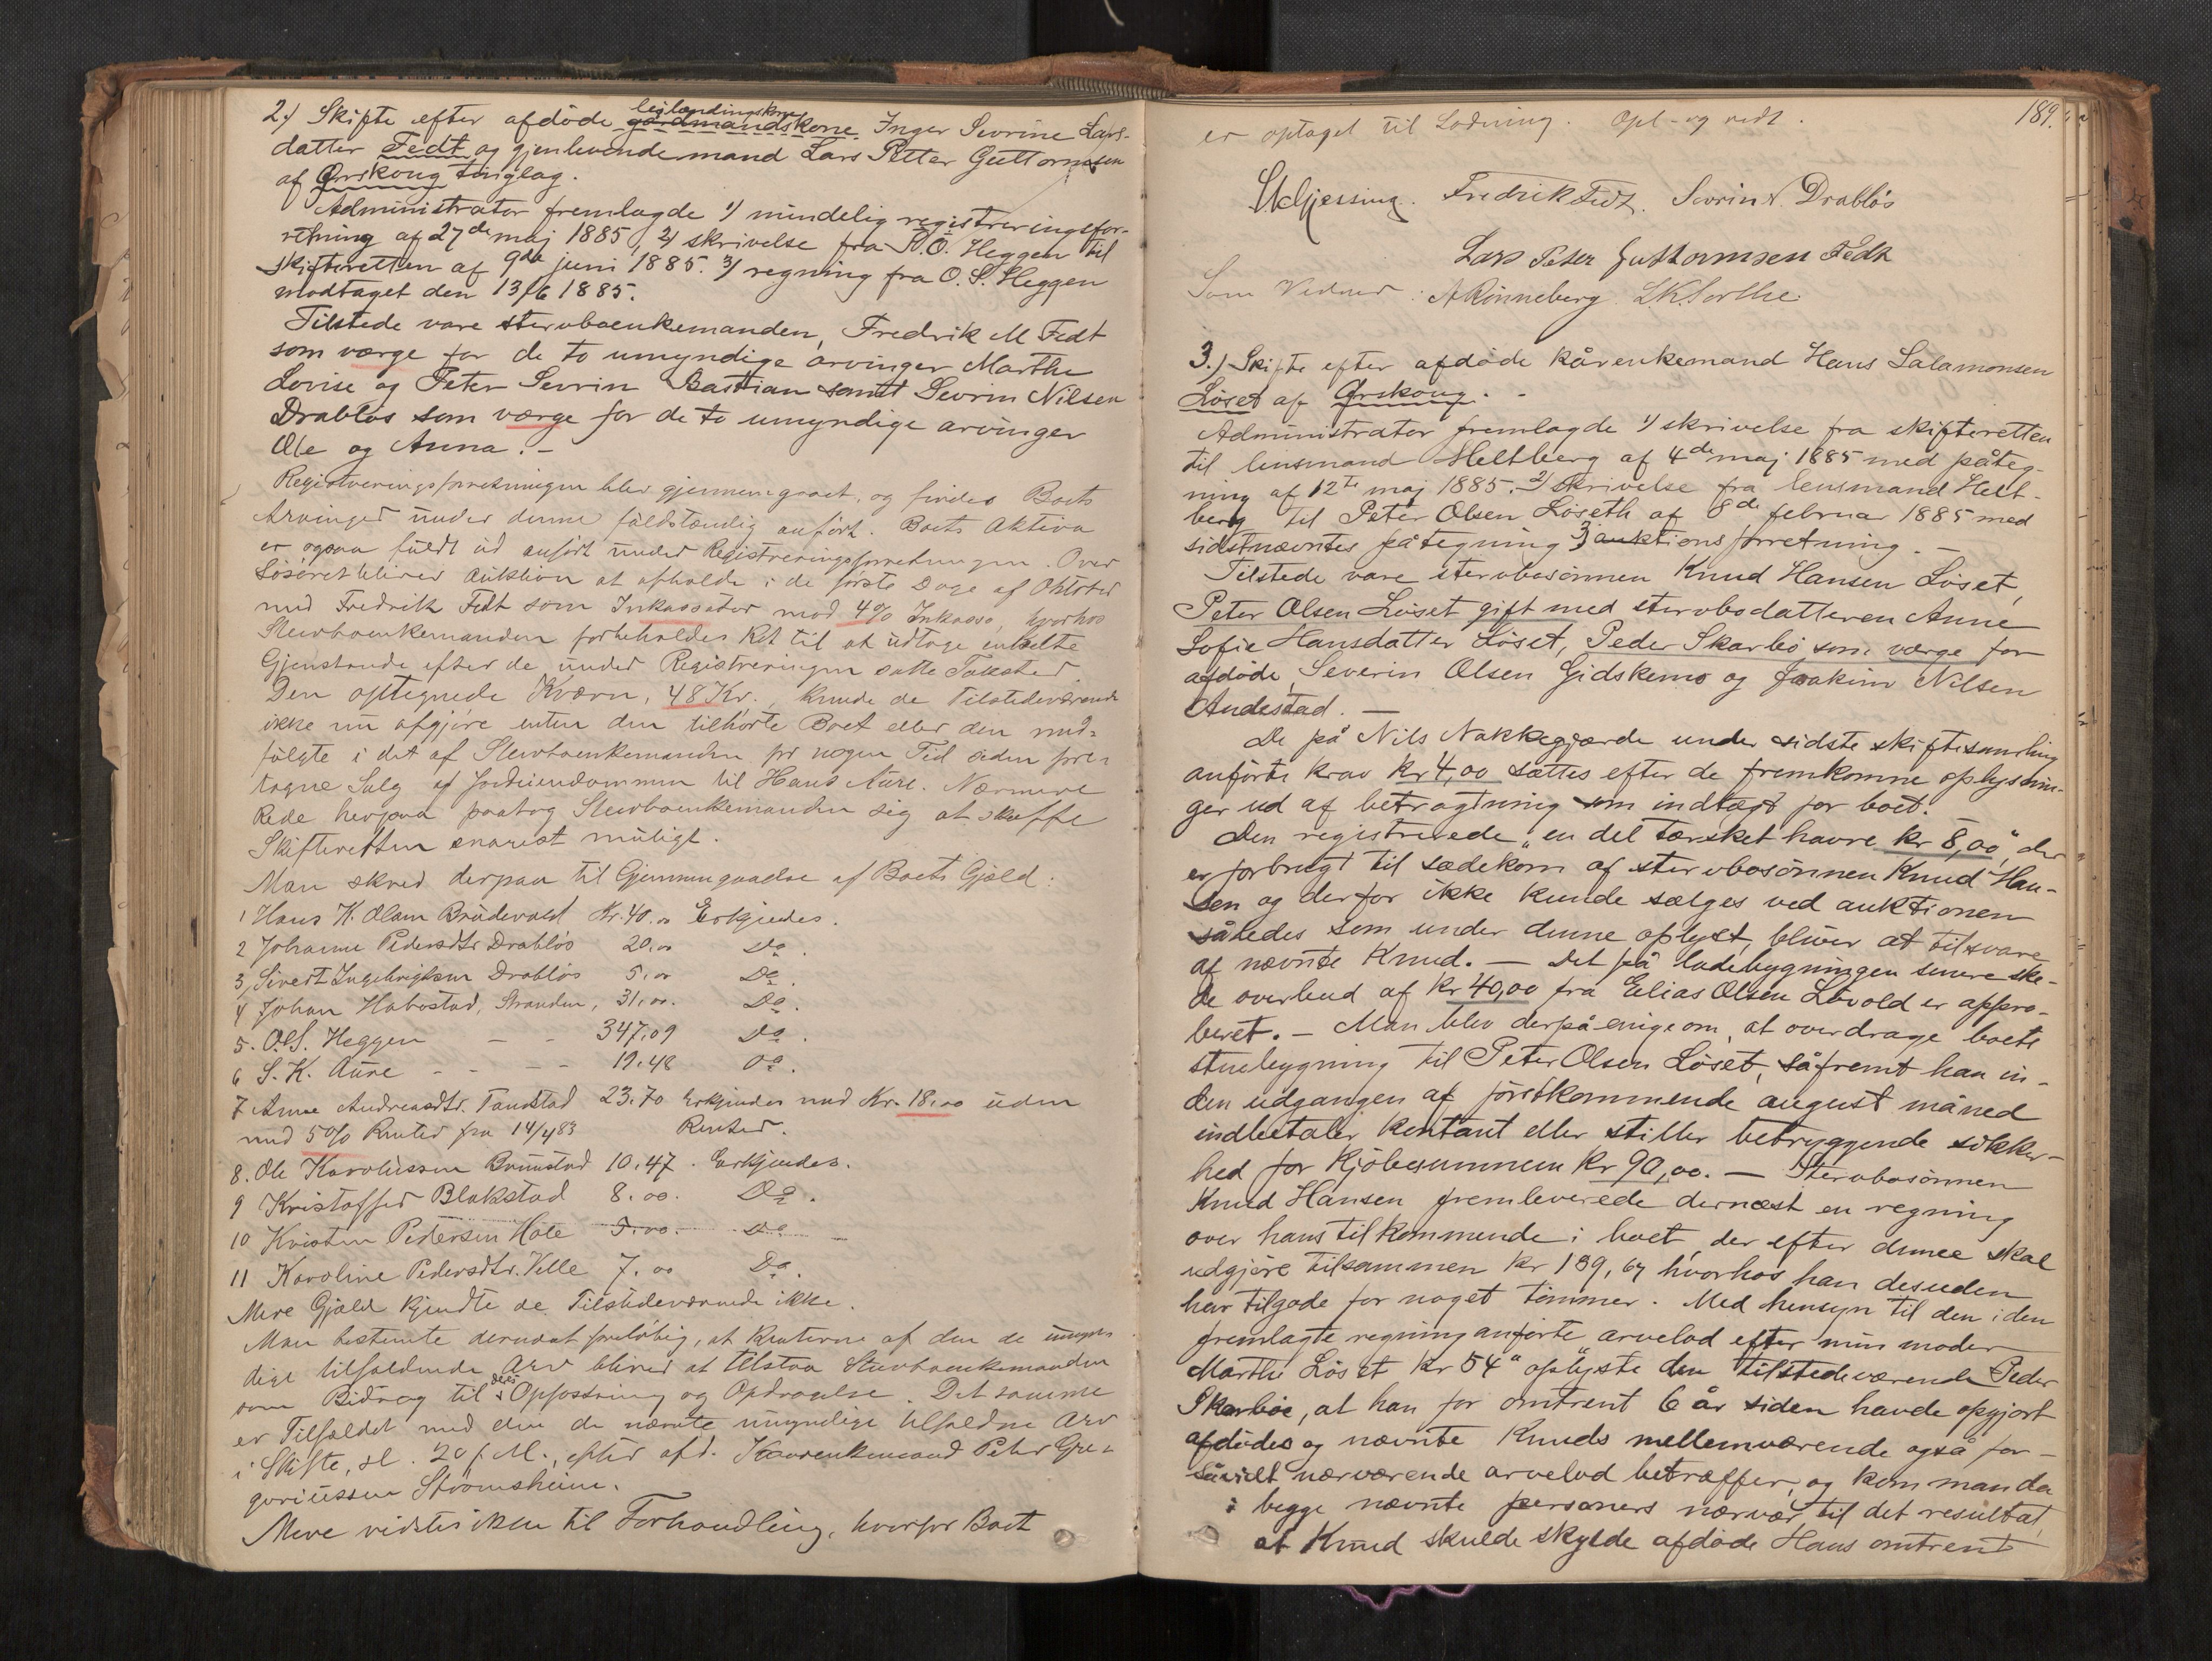 2.) Skifte efter afdöde leilændingskone gårdmandskone Inger Sevrine Lars-
datter Fedt og gjenlevende mand Lars Petter Guttormsen
af Ørskoug tinglag.
Administrator fremlagde 1) mindelig registreringsfor-
retning af 27de maj 1885, 2) skrivelse fra K. O. Heggen til
skifteretten af 9de juni 1885. 3) regning fra O. S. Heggen
modtaget den 13/6 1885.
Tilstede vare stervboenkemanden, Fredrik M Fedt
som værge for de to umyndige arvinger Marthe
Lovise og Peter Sevrin Bastian samt Sevrin Nilsen
Drabløs som værge for de to umyndige arvinger
Ole og Anna. -
Registreringsforretningen blev gjennemgaaet, og findes Boets
Arvinger under denne fuldstændig anført. Boets Aktiva
er ogsaa fuldt ud anført under Registreringsforretningen. Over
Løsøret bliver Auktion at afholde i de første Dage af Oktober
med Fredrik Fedt som Inkassator mod 4% Inkasso, hvorhos
Stervboenkemanden forbeholdes Ret til at udtage enkelte
Gjenstande efter de under Registreringen satte Takster.
Den optegnede Kværn, 48 Kr., kunde de Tilstedeværende
ikke nu afgjøre enten den tilhørte Boet eller den med-
fulgte i det af Stervboenkemanden for nogen Tid siden fore-
tagne Salg af Jordeiendommen til Hans Aure. Nærmere
Rede herpaa paatog Stervboenkemanden sig at skaffe
Skifteretten snarest muligt.
Man skred derpaa til Gjennemgaaelse af Boets Gjæld:
1 Hans K. Olsen Brudevold Kr. 40.00 Erkjendes.
2 Johanne Pedersdtr Drabløs 20.00 Do.
3, Sivert Ingebrigtsen Drabløs 5.00 Do.
4 Johan Habostad, Stranden, 31.00. Do.
5. O. S. Heggen - - 347.09 Do.
6 S. K. Aure - - - - 19.48 Do.
7 Anne Andreasdtr. Tandstad 23.70 Erkjendes med Kr. 18.00 uden
med 5% Renter fra 14/4 83 Renter.
8. Ole Karolussen Brunstad 10.47. Erkjendes.
9 Kristoffer Blakstad 8.00. Do.
10 Kristen Pedersen Hole 5.00. Do.
11 Karoline Pedersdtr. Velle 7.00 Do.
Mere Gjæld kjendte de Tilstedeværende ikke.
Man bestemte dernæst foreløbig, at Renterne af den de umyn-
dige tilfaldende Arv bliver at tilstaa Stervboenkemanden
som Bidrag til deres Opfostring og Opdragelse. Det samme
er Tilfældet med den de nævnte umyndige tilfaldne Arv
i Skifte, sl. 20 f. M., efter afd. Kaarenkemand Peter Gre-
goriussen Strømsheim.
Mere vidstes ikke til Forhandling, hvorfor Boet

189.
er optaget til Lodning. Opl. og vedt.
Fredrik Fedt. Sevrin N. Drabløs
Lars Peter Guttormsen Fedt
Som Vidner: A Rønneberg. L K Sorthe.
3.) Skifte efter afdøde kårenkemand Hans Salamonsen
Löset af Ørskoug. -
Administrator fremlagde 1) skrivelse fra skifteretten
til lensmand Heltberg af 4de maj 1885 med påteg-
ning af 12te maj 1885. 2) Skrivelse fra lensmand Helt-
berg til Peter Olsen Löseth af 8de februar 1885 med
sidstnævntes påtegning 3) auktionsforretning. -
Tilstede vare stervbosönnen Knud Hansen Löset,
Peter Olsen Löset gift med stervbodatteren Anne
Sofie Hansdatter Löset, Peder Skarbö som værge for
afdöde, Severin Olsen Gidskemo og Joakim Nilsen
Andestad. -
De på Nils Nakkegjærde under sidste skiftesamling
anförte krav kr 4,00 sættes efter de fremkomne oplysnin-
ger ud af betragtning som indtægt for boet.
Den registrerede "en del tærsket havre kr 8,00", der
er forbrugt til sædekorn af stervbosönnen Knud Han-
sen og derfor ikke kunde sælges ved auktionen
således som under denne oplyst, bliver at tilsvare
af nævnte Knud. - Det på ladebygningen senere ske-
de overbud af kr 40,00 fra Elias Olsen Lövold er appro-
beret. - Man blev derpå enige om, at overdrage boets
stuebygning til Peter Olsen Löset, såfremt han in-
den udgangen af förstkommende august måned
indbetaler kontant eller stiller betryggende sikker-
hed for kjöbesummen kr 90,00. - Stervbosönnen
Knud Hansen fremleverede dernæst en regning
over hans tilkommende i boet, der efter denne skal
udgjöre tilsammen kr 189,67 hvorhos han desuden
har tilgode for noget tömmer. Med hensyn til den i den
fremlagte regning anförte "arvelod efter min moder
Marthe Löset kr 54" oplyste den tilstedeværende Peder
Skarböe, at han for omtrent 6 år siden havde opgjort
afdödes og nævnte Knuds mellemværende også for-
såvidt nærværende arvelod betræffer, og kom man da
i begge nævnte personers nærvær til det resultat,
at Knud skulde skylde afdöde Hans omtrent